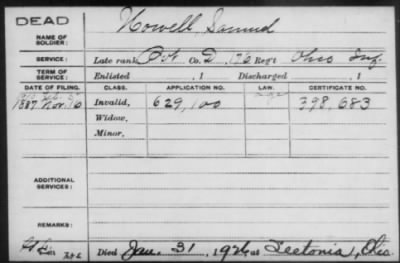 DEAD
NAME OF SOLDIER: Howell Samuel
SERVICE: Late rank, Pvt Co. D, 176 Reg't Ohio Inf.
TERM OF SERVICE: Enlisted , 1 Discharged , 1
DATE OF FILING. CLASS. APPLICATION NO. LAW. CERTIFICATE NO.
1887 Nov. 16 Invalid, 629,100 398,683
Widow,
Minor,
ADDITIONAL SERVICES:
REMARKS:
Died Jan. 31, 1926 at Leetonia, Ohio.